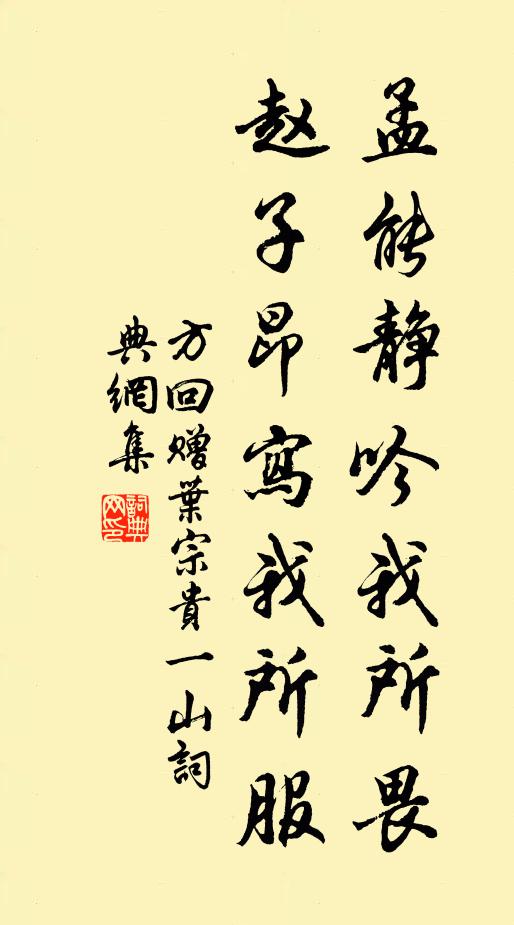 孟能静吟我所畏
赵子昂寫我所服
方回赠葉宗貴一山詞
典網集
詞典网印